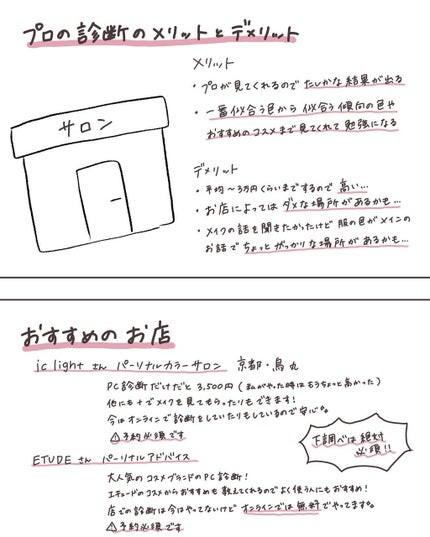 プロの診断のメリットとデメリット
メリット
・プロが見てくれるのでたしかな結果が出る
・一番似合う色から似合う傾向の色や
おすすめのコスメまで見てくれて勉強になる
サロン
デメリット
・平均〜3万円くらいまでするので高い…
・お店によってはダメな場所があるかも…
・メイクの話を聞きたかったけど服の色がメインの
お話でちょっとがっかりな場所があるかも…
おすすめのお店
ic lightさん パーソナルカラーサロン 京都・烏丸
PC診断だけだと3,500円(私がやった時はもうちょっと高かった)
他にも+でメイクを見てもらったりもできます!
今はオンラインで診断をしていたりもしているので安心。
⚠予約必須です
下調べは絶対
必須!!
ETUDEさん パーソナルアドバイス
大人気のコスメブランドのPC診断!
エチュードのコスメからおすすめも教えてくれるのでよく使う人にもおすすめ!
店での診断は今はやってないけどオンラインでは無料でやってます。
⚠予約必須です